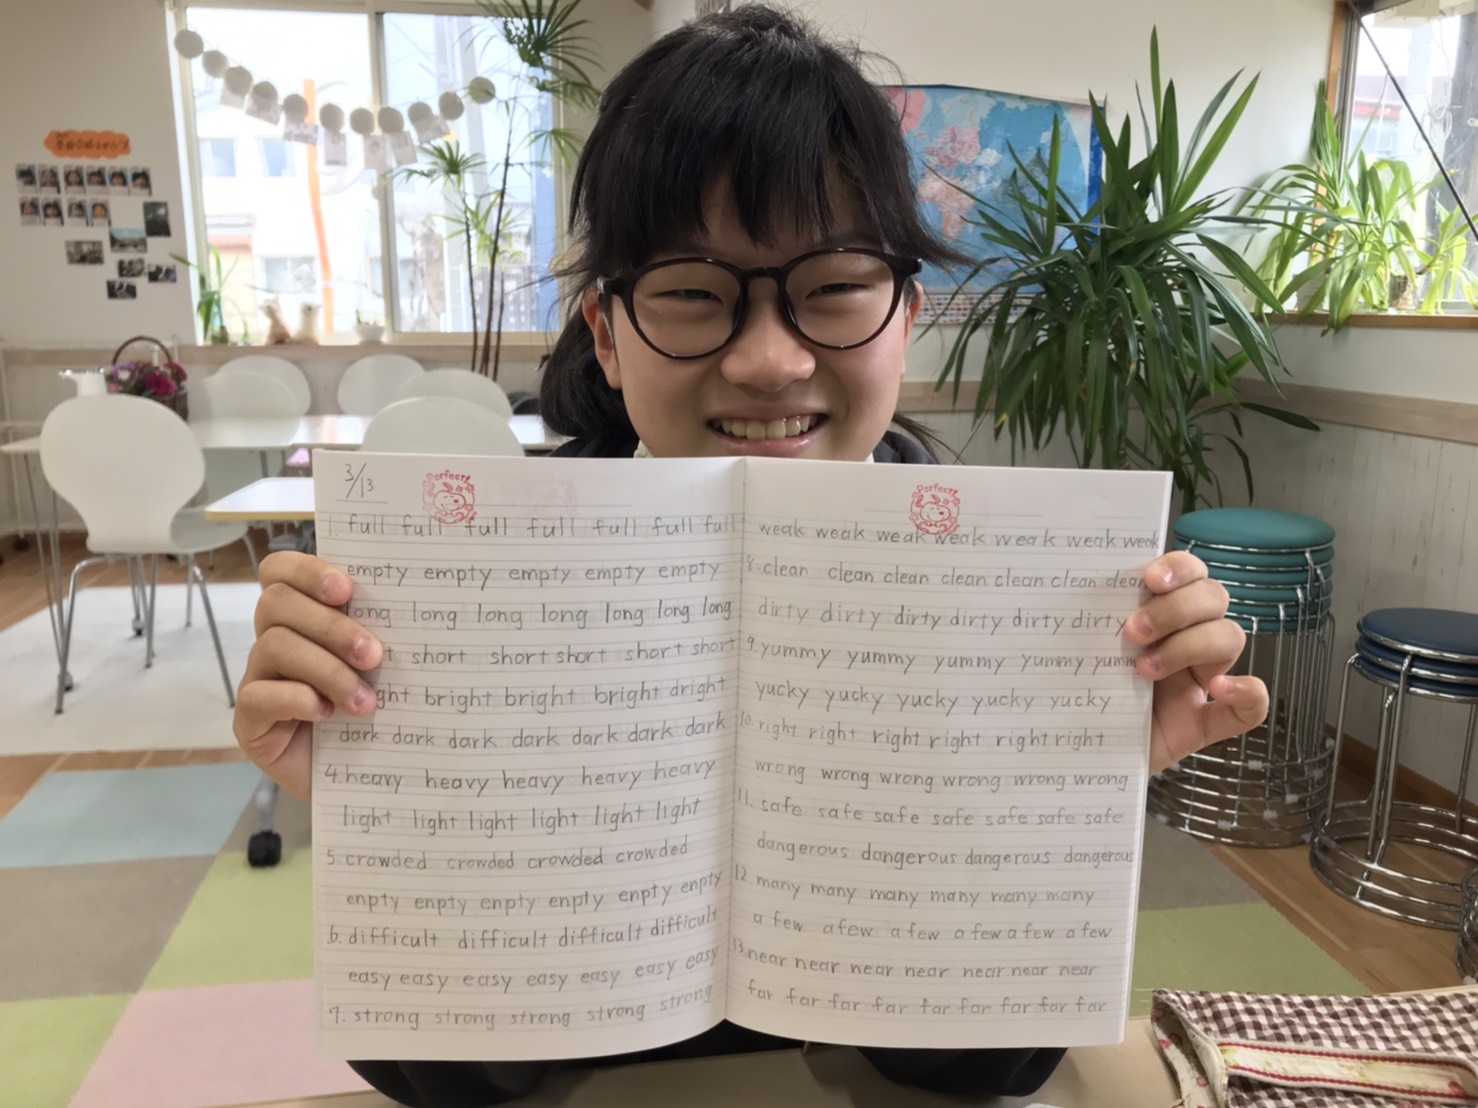 3/13
Perfect!
1. full full full full full full full
empty empty empty empty empty
long long long long long long long
short short short short short
bright bright bright dright
dark dark dark dark dark dark dark
4. heavy heavy heavy heavy heavy
light light light light light light
5. crowded crowded crowded crowded
enpty enpty enpty enpty enpty enpty
6. difficult difficult difficult difficult
easy easy easy easy easy easy easy
7. strong strong strong strong strong
Perfect!
weak weak weak weak weak weak weak
8. clean clean clean clean clean clean clean
dirty dirty dirty dirty dirty dirty
9. yummy yummy yummy yummy yummy
yucky yucky yucky yucky yucky
10. right right right right right right
wrong wrong wrong wrong wrong wrong
11. safe safe safe safe safe safe safe
dangerous dangerous dangerous dangerous
12. many many many many many many
a few a few a few a few a few a few
13. near near near near near near near
far far far far far far far far far